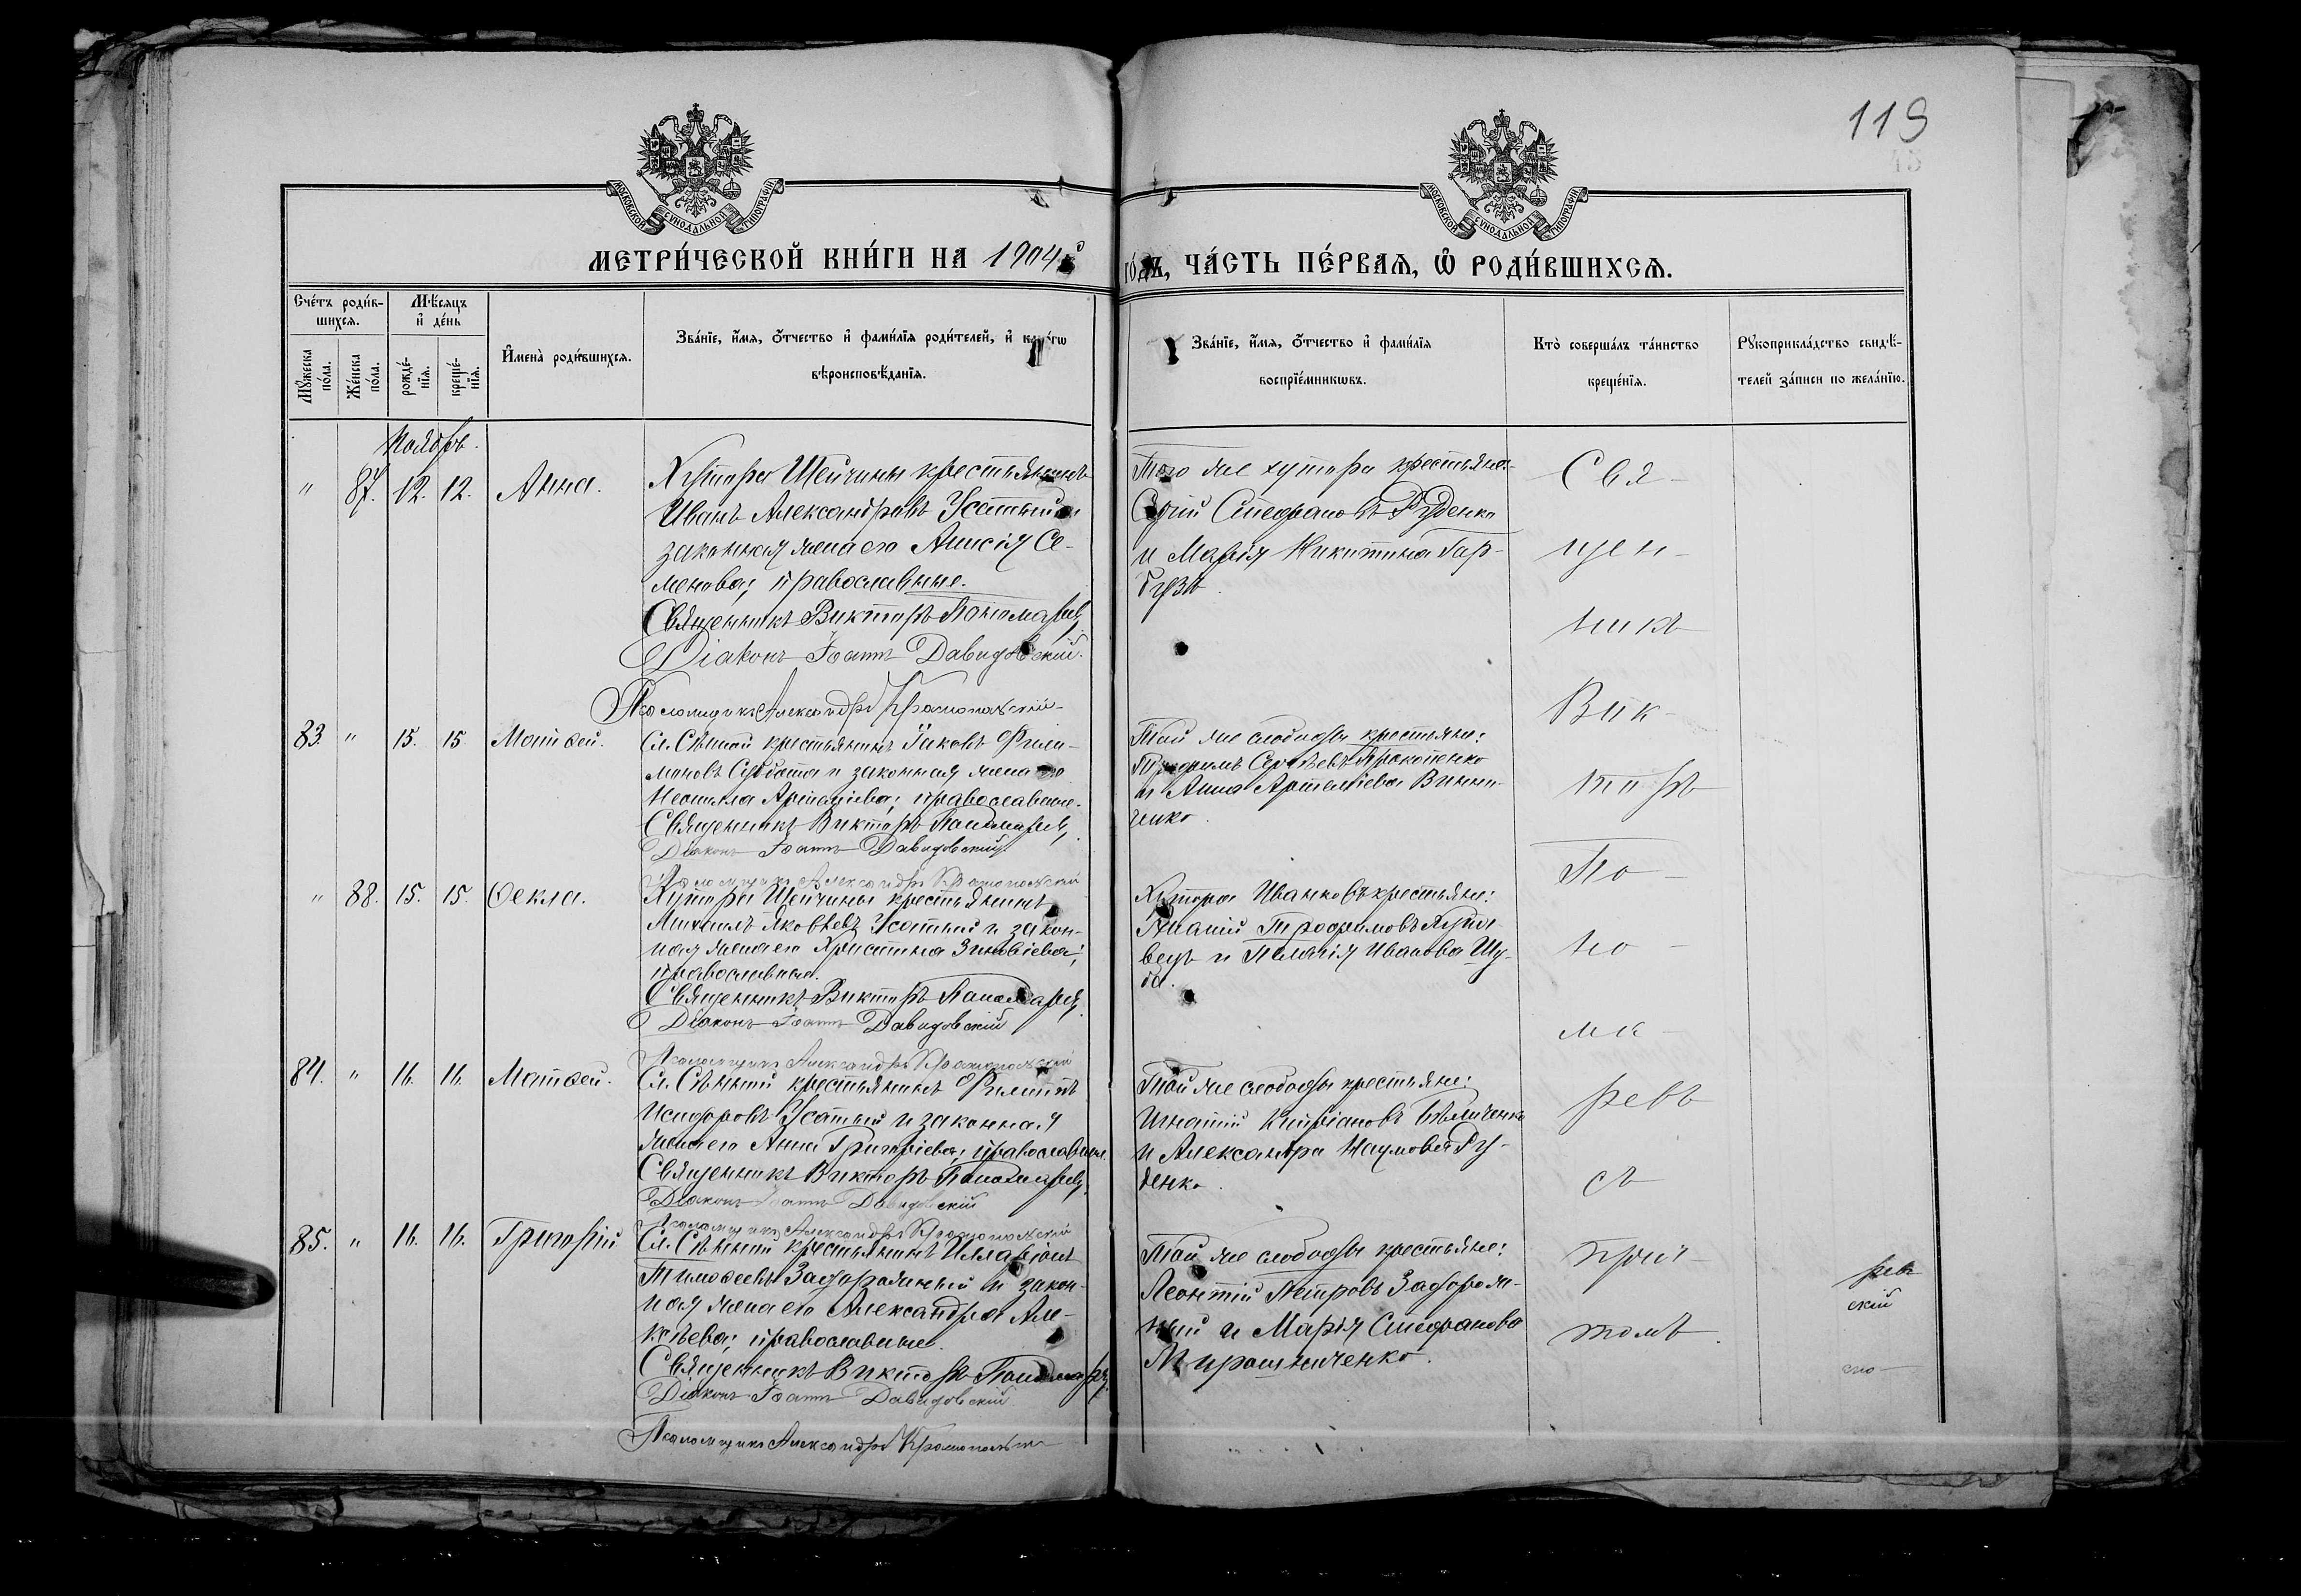 119
МОСКОВСКОЙ СУНОДАЛЬНОЙ ТИПОГРАФІИ
МОСКОВСКОЙ СУНОДАЛЬНОЙ ТИПОГРАФІИ
МЕТРИ́ЧЕСКОЙ КНИ́ГИ НА 1904й
го́дъ, ЧА́СТЬ ПЕ́РВАЯ, Ѿ РОДИ́ВШИХСЯ.
Сче́тъ роди́в-
шихся.
Мѣ́сяцъ
и҆ де́нь
Мꙋ́жеска
по́ла.
Же́нска
по́ла.
рожде́-
нїя.
креще́-
нїя.
И҆мена̀ роди́вшихся.
Зва́нїе, и҆́мя, ѻ҆́тчество и҆ фами́лїя роди́телей, и҆
вѣроисповѣ́данїя.
Зва́нїе, и҆́мя, ѻ҆́тчество и҆ фами́лїя
воспрїе́мникѡвъ.
Кто̀ соверша́лъ та́инство
креще́нїя.
Рꙋкоприкла́дство свидѣ́-
телей за́писи по жела́нїю.
Ноябрь.
" 87. 12. 12. Анна.
Хутора Шейчины крестьянинъ
Иванъ Александровъ Усатый и
законная жена его Анисія Се-
менова; православные.
Священникъ Викторъ Пономаревъ
Діаконъ Іоаннъ Давидовскій.
Псаломщикъ Александръ
Того же хутора крестьяне:
Стефановъ Руденко
и Марія Никитина Гар-
бузъ.
83. " 15. 15. Матѳей.
Сл. Сѣнной крестьянинъ Іаковъ Фили-
моновъ Суббота и законная жена его
Неонила православные.
Священникъ Викторъ Пономаревъ,
Діаконъ Іоаннъ Давидовскій.
Псаломщикъ Александръ
Той же слободы крестьяне:
Сергѣевъ Прокопенко
и Анна Артеміева Винни-
ченко.
" 88. 15. 15. Ѳекла.
Хутора Шейчины крестьянинъ
Михаилъ Яковлевъ Усатый и закон-
ная жена его Христина Зиновіева;
православные.
Священникъ Викторъ Пономаревъ
Діаконъ Іоаннъ Давидовскій
Псаломщикъ Александръ
Хутора Иванковъ крестьяне:
Трофимовъ
вецъ и Пелагія Иванова Шу-
ба.
84. " 16. 16. Матѳей.
Сл. Сѣнной крестьянинъ Филиппъ
Исидоровъ Усатый и законная
жена его Анна Григоріева; православные.
Священникъ Викторъ Пономаревъ,
Діаконъ Іоаннъ Давидовскій
Псаломщикъ Александръ
Той же слободы крестьяне:
Игнатій Кипріановъ Бѣличенко
и Александра Наумова Ру-
денко.
85. " 16. 16. Григорій
Сл. Сѣнной крестьянинъ Илларіонъ
Тимоѳеевъ Загорожный и закон-
ная жена его Александра Але-
ксѣева; православные.
Священникъ Викторъ Пономаревъ,
Діаконъ Іоаннъ Давидовскій
Псаломщикъ Александръ
Той же слободы крестьяне:
Леонтій Петровъ Загорож-
ный и Марія Стефанова
Мирошниченко.
Свя-
щен-
никъ
Вик-
торъ
По-
но-
ма-
ревъ
съ
прич-
томъ.
ревъ
скій